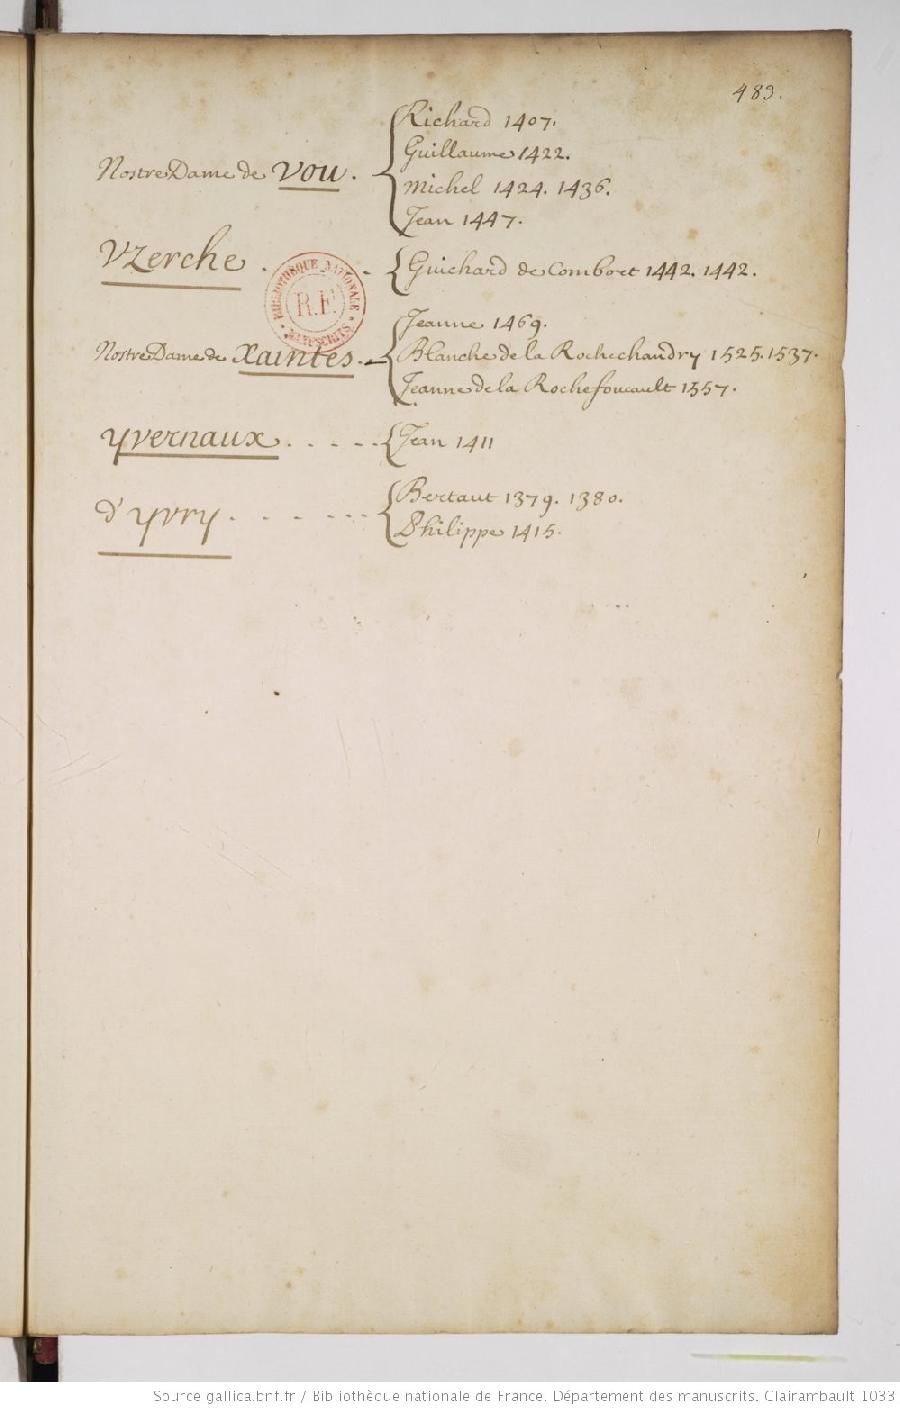 483.
Nostre Dame de Vou.
Richard 1407.
Guillaume 1422.
Michel 1424. 1436.
Jean 1447.
Vzerche . . .
Guichard de Combort 1442. 1442.
BIBLIOTHEQUE NATIONALE
R.F.
MANUSCRITS
Nostre Dame de Xaintes.
Jeanne 1469.
Blanche de la Rochechandry 1525. 1537.
Jeanne de la Rochefoucault 1557.
Yvernaux . . . . .
Jean 1411
d'Yvry . . . . . .
Bertaut 1379. 1380.
Philippe 1415.
Source gallica.bnf.fr / Bibliothèque nationale de France. Département des manuscrits. Clairambault 1033